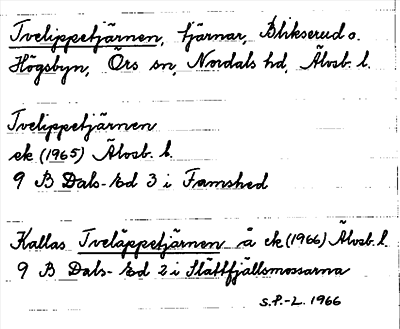 Tvelippetjärnen, tjärnar, Blikserud o.
Högsbyn, Örs sn, Nordals hd, Älvsb. l.
Tvelippetjärnen
ek (1965) Älvsb. l.
9 B Dals-Ed 3 i Framshed
Kallas Tveläppetjärnen å ek (1966) Älvsb. l.
9 B Dals-Ed 2 i Slättfjällsmossarna
S.P.-L. 1966